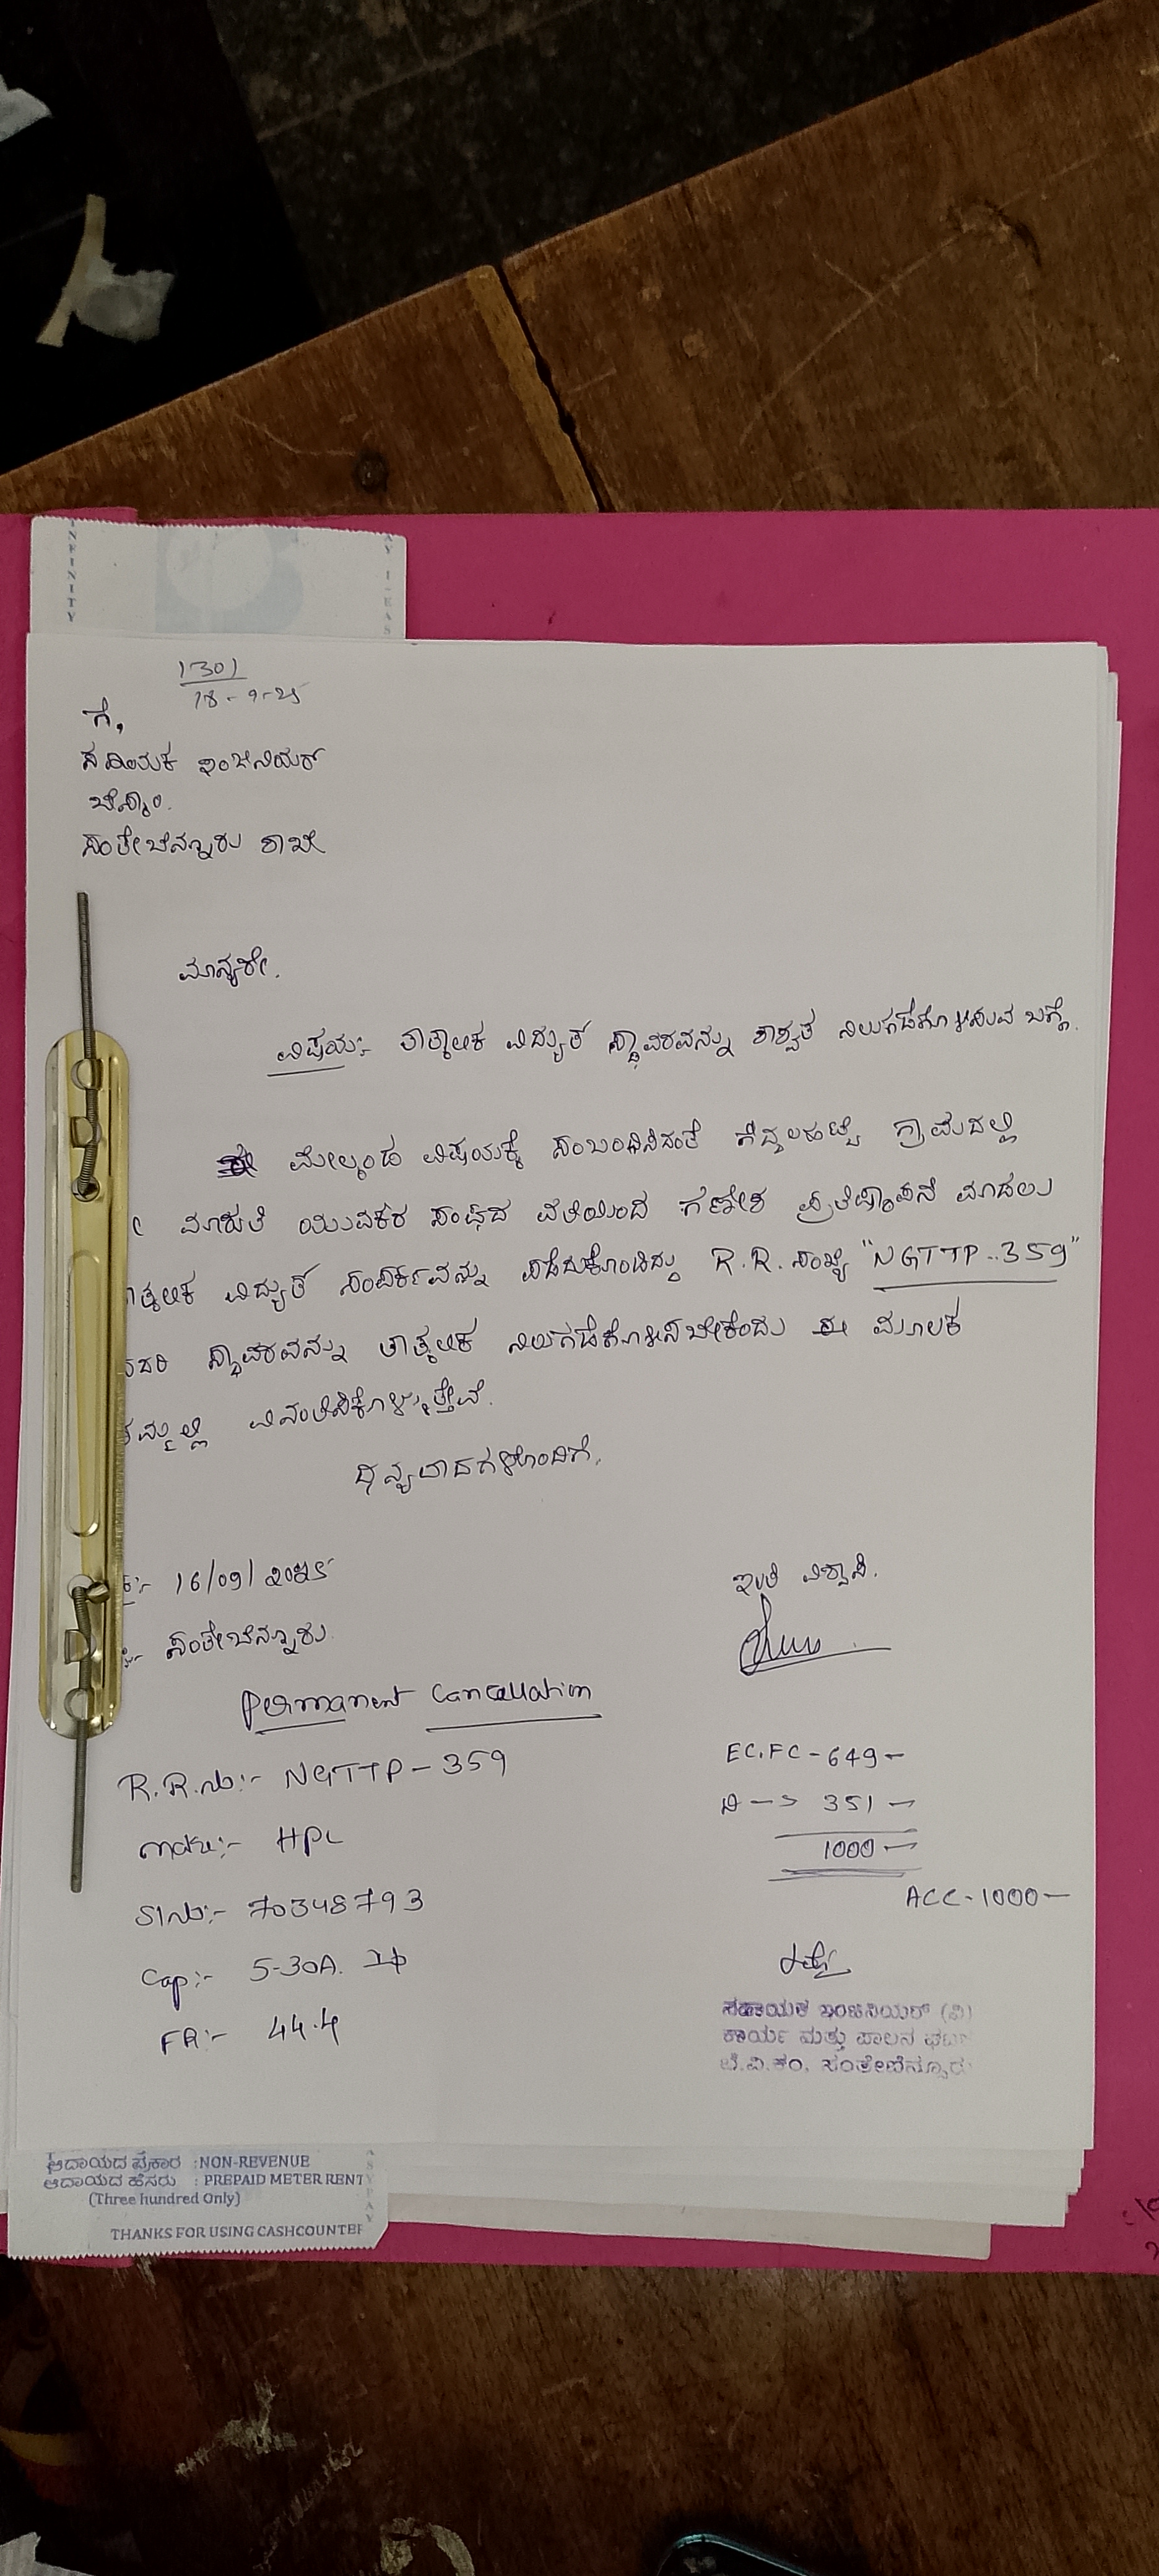 INFINITY
AY I-EAS
1301
18-9-25
ಗೆ,
ಸಹಾಯಕ ಇಂಜಿನಿಯರ್
ಬೆಸ್ಕಾಂ.
ಸಂತೇಬೆನ್ನೂರು ಶಾಖೆ
ಮಾನ್ಯರೇ.
ವಿಷಯ:- ತಾತ್ಕಾಲಿಕ ವಿದ್ಯುತ್ ಸ್ಥಾವರವನ್ನು ಶಾಶ್ವತ ನಿಲುಗಡೆಗೊಳಿಸುವ ಬಗ್ಗೆ.
ಮೇಲ್ಕಂಡ ವಿಷಯಕ್ಕೆ ಸಂಬಂಧಿಸಿದಂತೆ ಗ್ರಾಮದಲ್ಲಿ
ಮಾರುತಿ ಯುವಕರ ಸಂಘದ ವತಿಯಿಂದ ಗಣೇಶ ಪ್ರತಿಷ್ಠಾಪನೆ ಮಾಡಲು
ತ್ಕಲಿಕ ವಿದ್ಯುತ್ ಸಂಪರ್ಕವನ್ನು ಪಡೆದುಕೊಂಡಿದ್ದು R.R. ಸಂಖ್ಯೆ "NGTTP-359"
ಸದರಿ ಸ್ಥಾವರವನ್ನು ತಾತ್ಕಲಿಕ ನಿಲುಗಡೆಗೊಳಿಸಬೇಕೆಂದು ಈ ಮೂಲಕ
ತಮ್ಮಲ್ಲಿ ವಿನಂತಿಸಿಕೊಳ್ಳುತ್ತೇವೆ.
ಧನ್ಯವಾದಗಳೊಂದಿಗೆ.
ಕ:- 16/09/೨೦೨೫
ಇಂತಿ ವಿಶ್ವಾಸಿ.
ಳ:- ಸಂತೇಬೆನ್ನೂರು
Permanent Cancellation
R.R.No:- NGTTP-359
EC.FC - 649-
-> 351 -
make:- HPL
1000 -
Slno:- 70348793
ACC-1000-
Cap:- 5-30A. 1φ
FR:- 44.4
ಸಹಾಯಕ ಇಂಜಿನಿಯರ್ (ವಿ)
ಕಾರ್ಯ ಮತ್ತು ಪಾಲನ ಘಟ
ಬೆ.ವಿ.ಕಂ, ಸಂತೇಬೆನ್ನೂರು
ಆದಾಯದ ಪ್ರಕಾರ :NON-REVENUE
ಆದಾಯದ ಹೆಸರು : PREPAID METER RENT
(Three hundred Only)
THANKS FOR USING CASHCOUNTER
ASYPAY